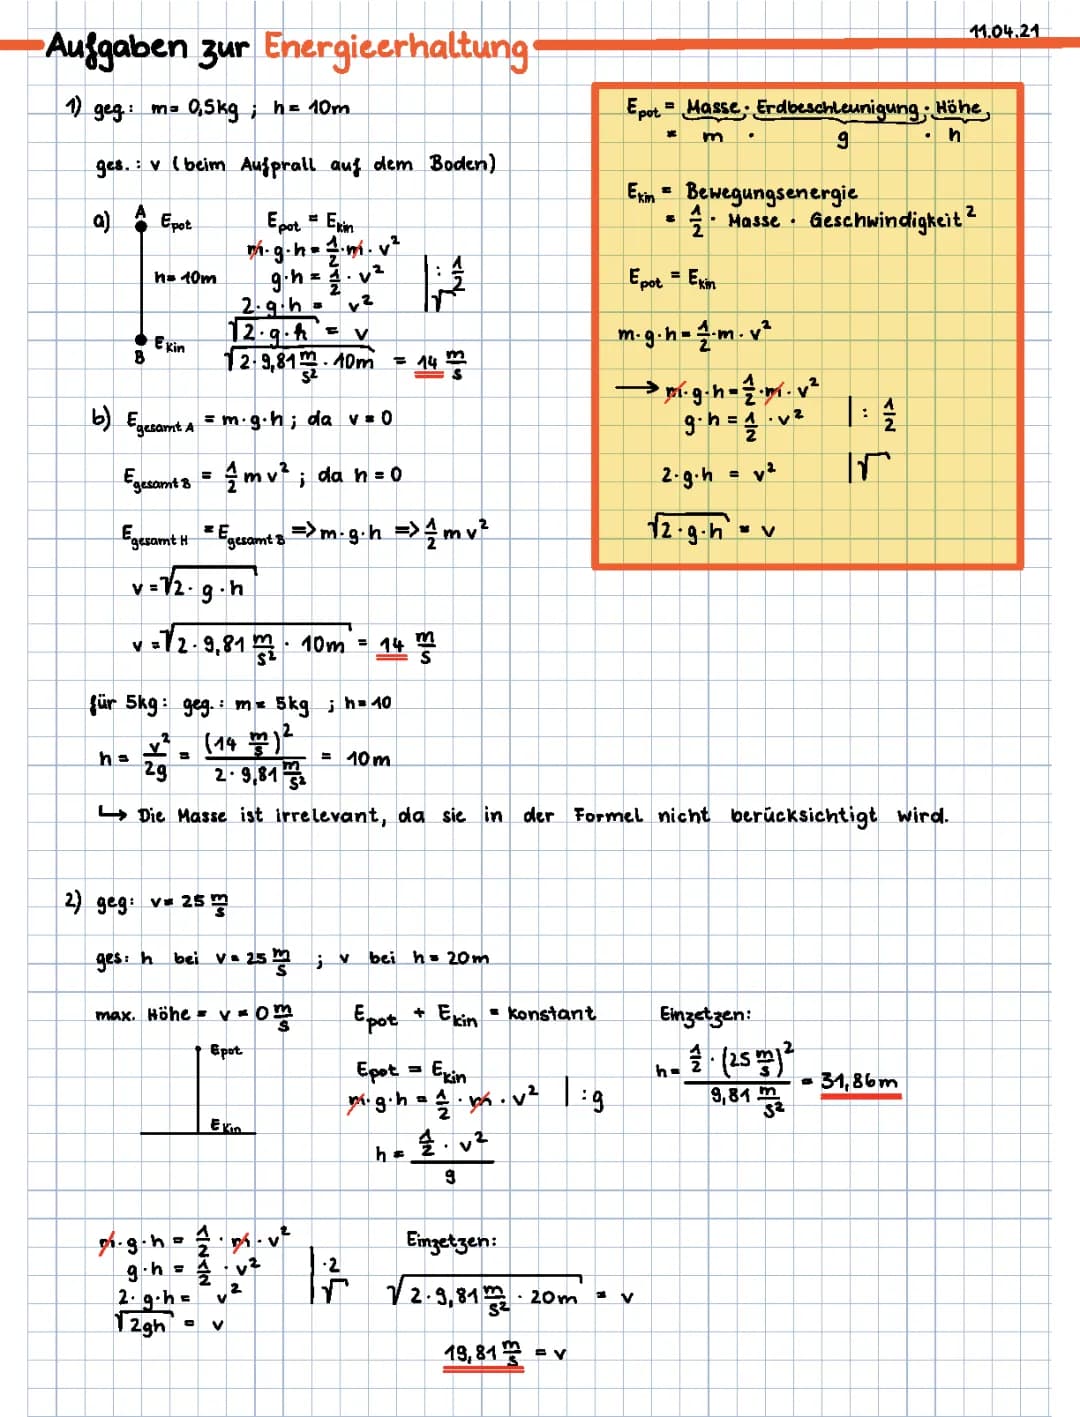 Aufgaben zur Energieerhaltung
11.04.21
1) geg.: m= 0,5kg ; h= 10m
ges.: v (beim Aufprall auf dem Boden)
a) A Epot
h= 10m
B Ekin
Epot = Ekin
m·g·h = 1/2·m·v²
g·h = 1/2·v² |: 1/2
2·g·h = v² |√
√2·g·h = v
√2·9,81 m/s² · 10m = 14 m/s
b) Egesamt A = m·g·h ; da v = 0
Egesamt B = 1/2 m v² ; da h = 0
Egesamt H = Egesamt B => m·g·h => 1/2 m v²
v = √2·g·h
v = √2·9,81 m/s² · 10m = 14 m/s
für 5kg: geg.: m= 5kg ; h= 10
h= v²/2g = (14 m/s)²/2·9,81 m/s² = 10m
↳ Die Masse ist irrelevant, da sie in der Formel nicht berücksichtigt wird.
Epot = Masse · Erdbeschleunigung · Höhe
= m · g · h
Ekin = Bewegungsenergie
= 1/2 · Masse · Geschwindigkeit²
Epot = Ekin
m·g·h = 1/2·m·v²
→ m·g·h = 1/2·m·v²
g·h = 1/2·v² |: 1/2
2·g·h = v² |√
√2·g·h = v
2) geg: v= 25 m/s
ges: h bei v= 25 m/s ; v bei h= 20m
max. Höhe = v = 0 m/s
Epot
Ekin
Epot + Ekin = konstant
Epot = Ekin
m·g·h = 1/2·m·v² |:g
h = 1/2·v²/g
Einzetzen:
h= 1/2·(25 m/s)²/9,81 m/s² = 31,86m
m·g·h = 1/2·m·v²
g·h = 1/2·v² |·2
2·g·h = v² |√
√2gh = v
Einzetzen:
√2·9,81 m/s² · 20m = v
19,81 m/s = v